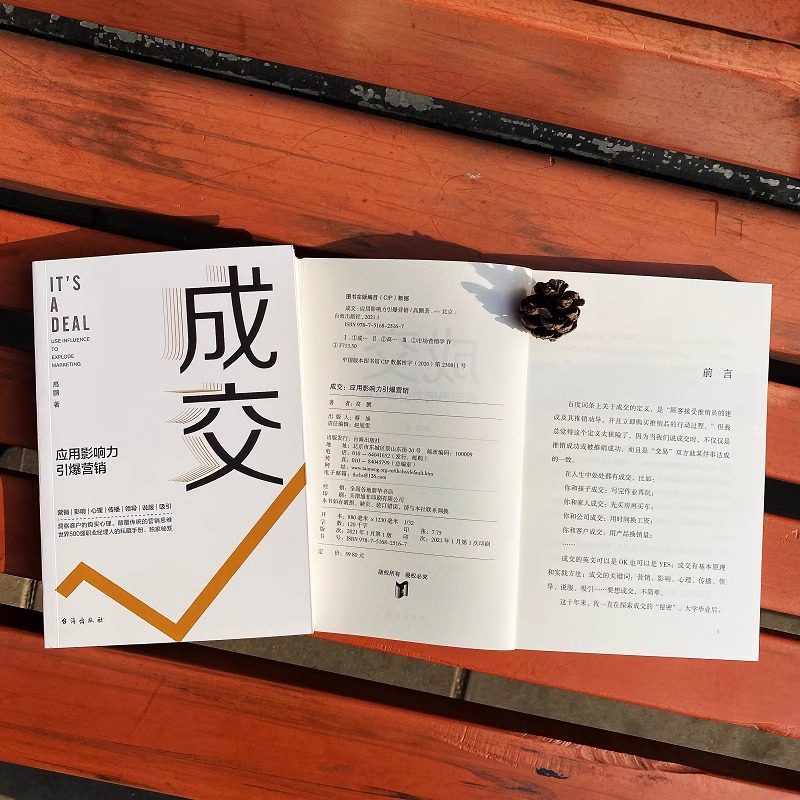 IT'S
A
DEAL
USE INFLUENCE
TO
EXPLODE
MARKETING
高鹏 著
成交
应用影响力
引爆营销
营销|影响|心理|传播|领导|说服|吸引
洞察客户的购买心理，颠覆传统的营销思维
世界500强职业经理人的私藏手册、独家秘笈
台海出版社
图书在版编目（CIP）数据
成交：应用影响力引爆营销/高鹏著. — 北京：
台海出版社，2021.1
ISBN 978-7-5168-2516-7
Ⅰ.①成… Ⅱ.①高… Ⅲ.①市场营销学 Ⅳ.
①F713.50
中国版本图书馆CIP数据核字（2020）第230811号
成交：应用影响力引爆营销
著 者：高 鹏
出 版 人：蔡 旭
责任编辑：赵旭雯
出版发行：台海出版社
地 址：北京市东城区景山东街20号 邮政编码：100009
电 话：010－64041652（发行，邮购）
传 真：010－84045799（总编室）
网 址：www.taimeng.org.cn/thcbs/default.htm
电子邮箱：thcbs@126.com
经 销：全国各地新华书店
印 刷：天津旭非印刷有限公司
本书如有破损、缺页、装订错误，请与本社联系调换
开 本：880毫米×1230毫米 1/32
字 数：120千字 印 张：7.75
版 次：2021年1月第1版 印 次：2021年1月第1次印刷
书 号：ISBN 978-7-5168-2516-7
定 价：59.80元
版权所有 侵权必究
前 言
百度词条上关于成交的定义，是“顾客接受推销员的建
议及其推销劝导，并且立即购买推销品的行动过程。”但我
总觉得这个定义太狭隘了，因为当我们说成交时，不仅仅是
推销成功或被推销成功，而且是“交易”双方就某件事达成
的一致。
在人生中处处都有成交，比如：
你和孩子成交：写完作业再玩；
你和家人成交：先买房再买车；
你和公司成交：用时间换工资；
你和客户成交：用产品换销量；
……
成交的英文可以是OK也可以是YES；成交有基本原理
和实践方法；成交的关键词：营销、影响、心理、传播、领
导、说服、吸引……要想成交，不简单。
这十年来，我一直在探索成交的“秘密”，大学毕业后，
1